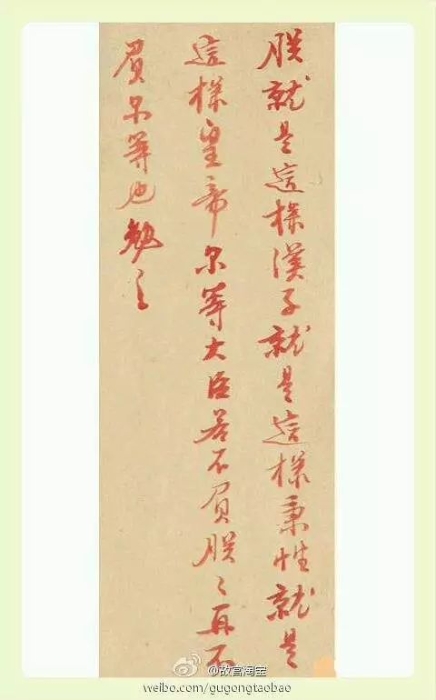 朕就是這樣漢子就是這樣秉性就是
這樣皇帝尔等大臣若不負朕〻再不
負尔等也勉之
@故宫淘宝
weibo.com/gugongtaobao